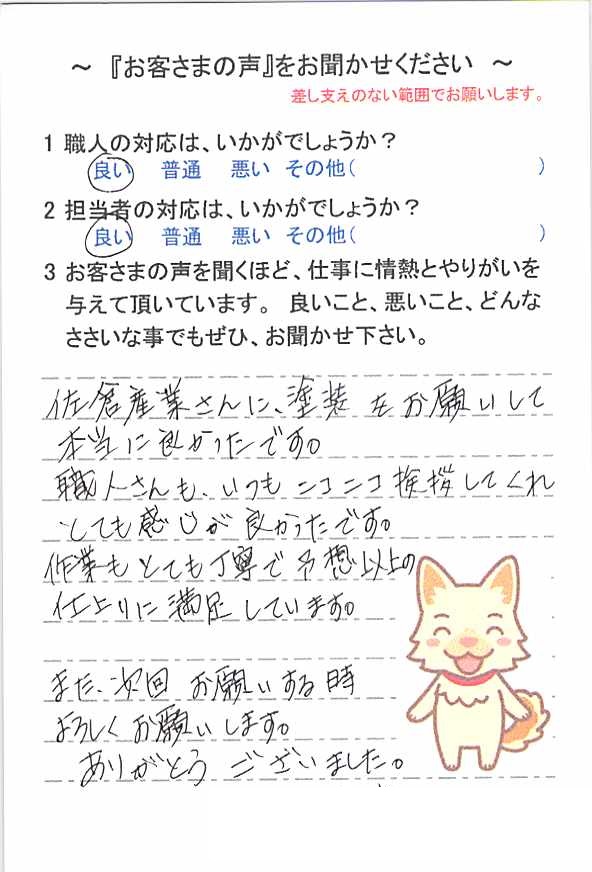 ～ 『お客さまの声』をお聞かせください ～
差し支えのない範囲でお願いします。
1 職人の対応は、いかがでしょうか？
良い 普通 悪い その他( )
2 担当者の対応は、いかがでしょうか？
良い 普通 悪い その他( )
3 お客さまの声を聞くほど、仕事に情熱とやりがいを
与えて頂いています。 良いこと、悪いこと、どんな
ささいな事でもぜひ、お聞かせ下さい。
佐倉産業さんに、塗装をお願いして
本当に良かったです。
職人さんも、いつもニコニコ挨拶してくれ
とても感じが良かったです。
作業もとても丁寧で予想以上の
仕上りに満足しています。
また、次回お願いする時
よろしくお願いします。
ありがとうございました。